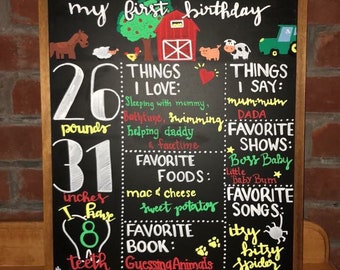 my first birthday
26
pounds
31
inches
I have
8
teeth
THINGS
I LOVE:
Sleeping with mommy,
Bathtime, swimming
helping daddy
& facetime
FAVORITE
FOODS:
mac & cheese
sweet potatoes
FAVORITE
BOOK:
Guessing Animals
THINGS
I SAY:
mummum
DADA
FAVORITE
SHOWS:
Boss Baby
little
Baby Bum
FAVORITE
SONGS:
Itsy
bitsy
spider